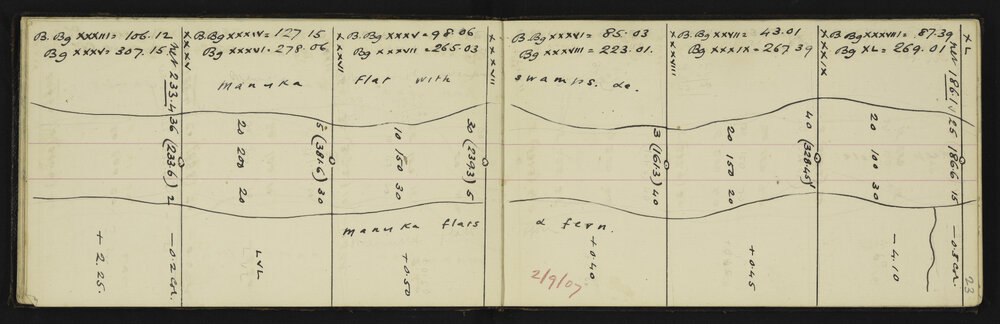 B. Bg XXXIII = 106.12
Bg XXXV = 307.15
XXXV
B. Bg XXXIV = 127 15
Bg XXXVI = 278.06
XXXVI
B. Bg XXXV = 98.06
Bg XXXVII = 265.03
XXXVII
B. Bg XXXVI = 85.03
Bg XXXVIII = 223.01.
XXXVIII
B. Bg XXXVII = 43.01
Bg XXXIX = 267 39
XXXIX
B. Bg XXXVIII = 87.39
Bg XL = 269.01
XL
Manuka Flat with swamps. &c.
233.4
36 (233.6) 2
20 200 20
5 (381.6) 30
10 150 30
30 (239.3) 5
3 (161.3) 40
20 150 20
40 (328.45)
20 100 30
186.1
25 186.6 15
Manuka flats & fern.
+ 2.25.
-0.2 cor.
LVL
+0.50
+0.40
+0.45
-4.10
-0.5 cor.
2/9/07
23